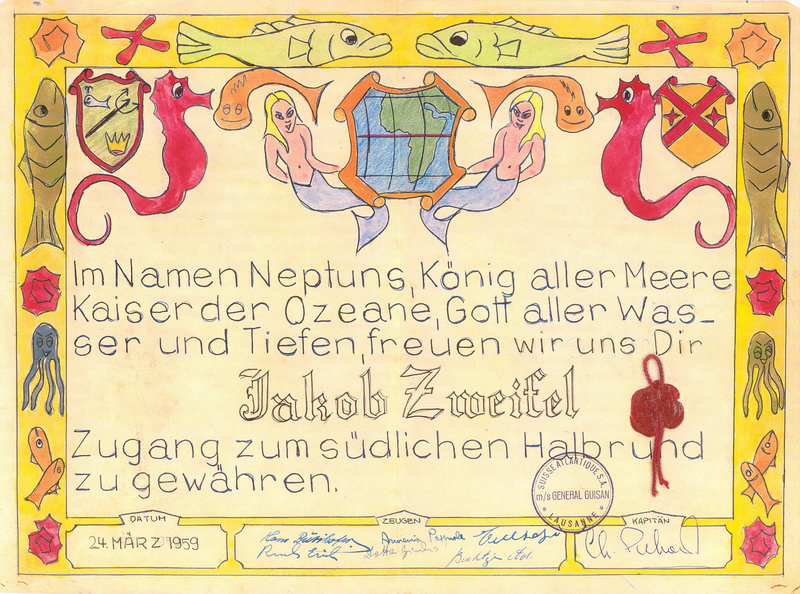 Im Namen Neptuns, König aller Meere
Kaiser der Ozeane, Gott aller Was-
ser und Tiefen, freuen wir uns Dir
Jakob Zweifel
Zugang zum südlichen Halbrund
zu gewähren.
SUISSE ATLANTIQUE S.A.
m/s GENERAL GUISAN
LAUSANNE
DATUM
ZEUGEN
KAPITÄN
24. MÄRZ 1959
Hans